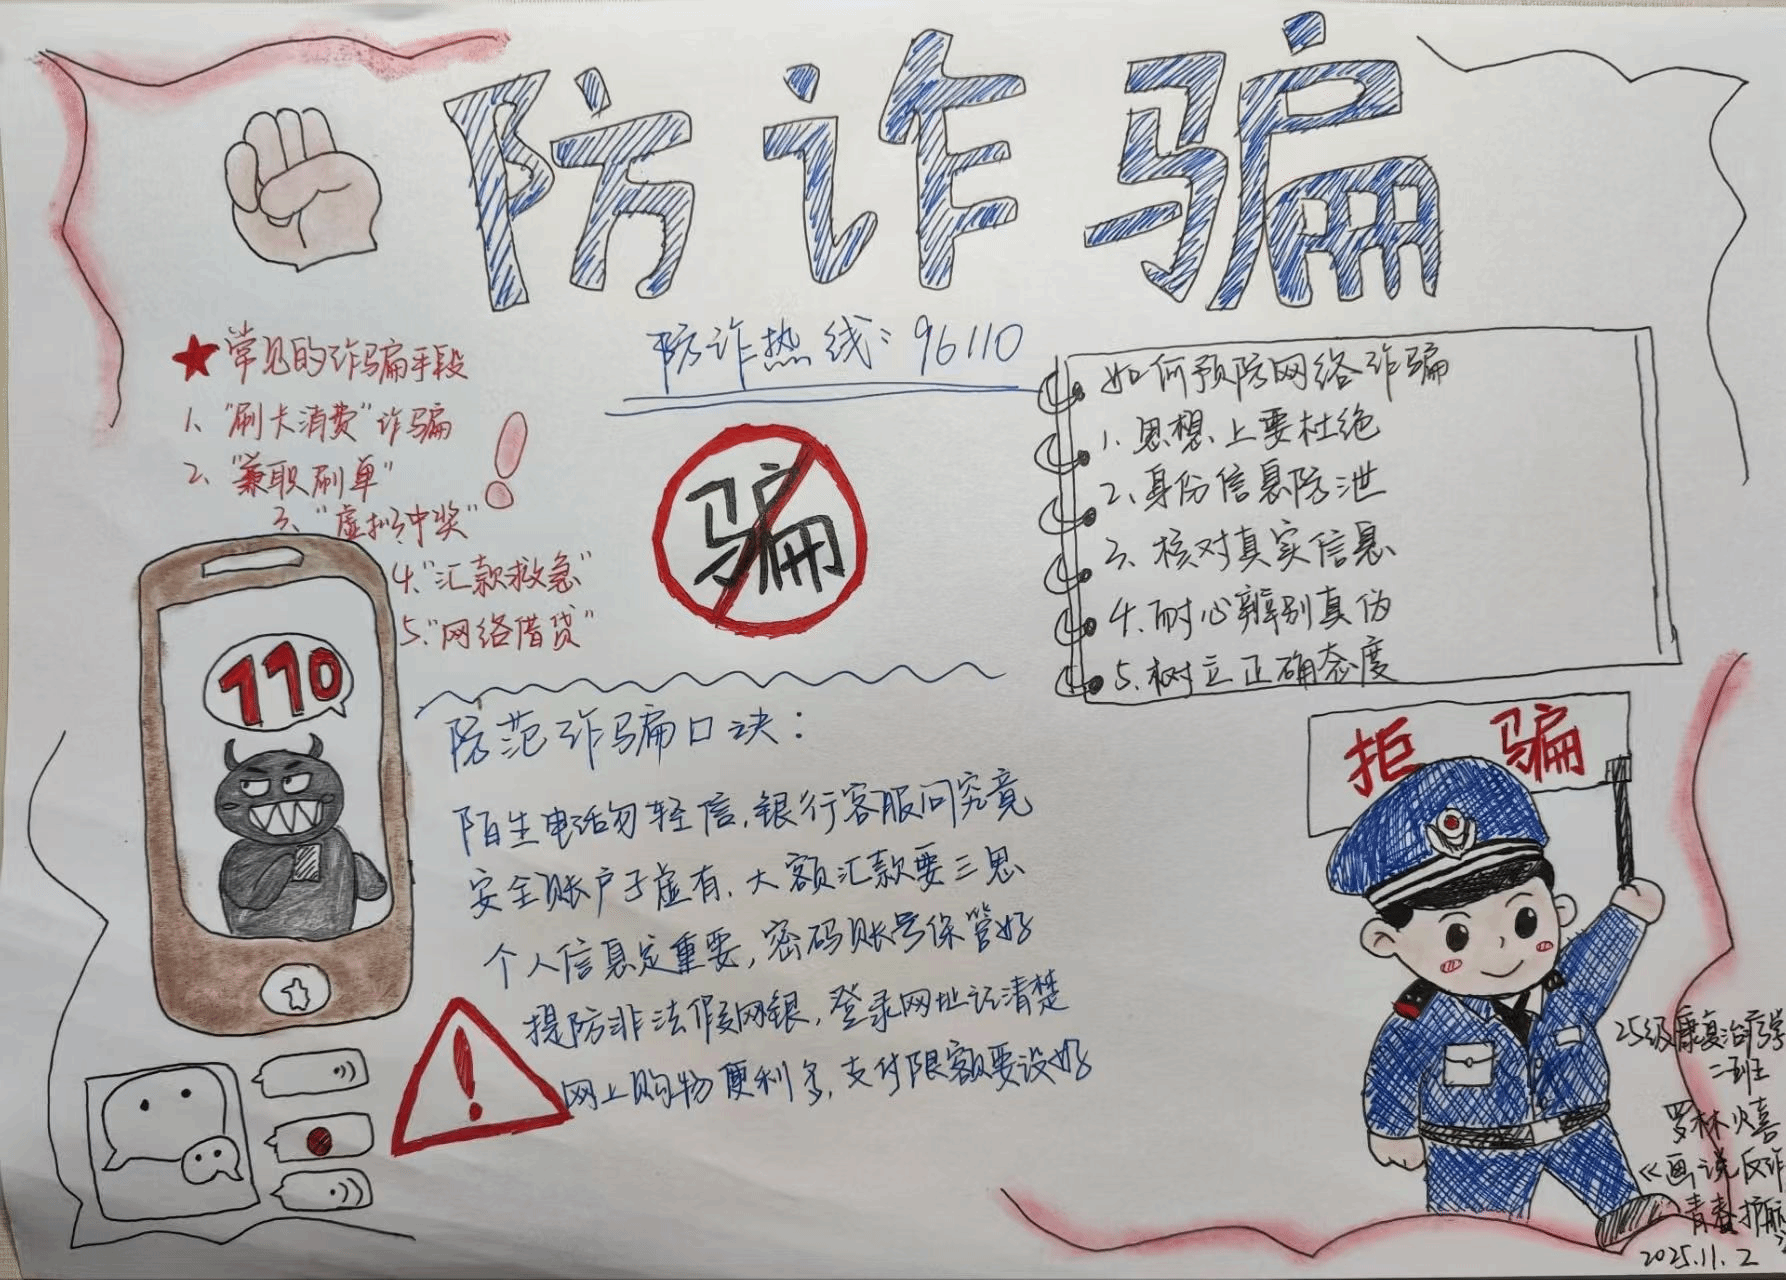 防诈骗
防诈热线：96110
★常见的诈骗手段
1、“刷卡消费”诈骗
2、“兼职刷单”
3、“虚拟中奖”
4、“汇款救急”
5、“网络借贷”
110
骗
如何预防网络诈骗
1、思想上要杜绝
2、身份信息防泄
3、核对真实信息
4、耐心辨别真伪
5、树立正确态度
防范诈骗口诀：
陌生电话勿轻信，银行客服问究竟
安全账户子虚有，大额汇款要三思
个人信息定重要，密码账号保管好
提防非法假网银，登录网址记清楚
网上购物便利多，支付限额要设好
拒 骗
25级康复治疗学
二班
罗林
《画说反诈
青春护航》
2025.11.2